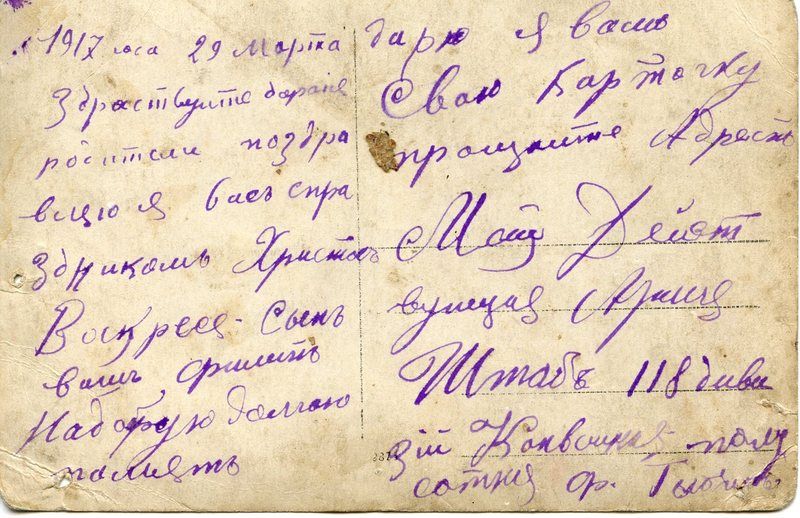 1917 юса 29 Марта
Здраствуите дорагие
родители поздра
вляю я васъ спра
здникомъ Христосъ
Воскресе. Сынъ
вашъ Филипъ
На добрую долгаю
памить
дарю я вамъ
Сваю Карточку
прощаите Адресъ
Мой Дейст
вущия Армия
Штабъ 118 диви
зіи Конвойная полу
сотня ф.